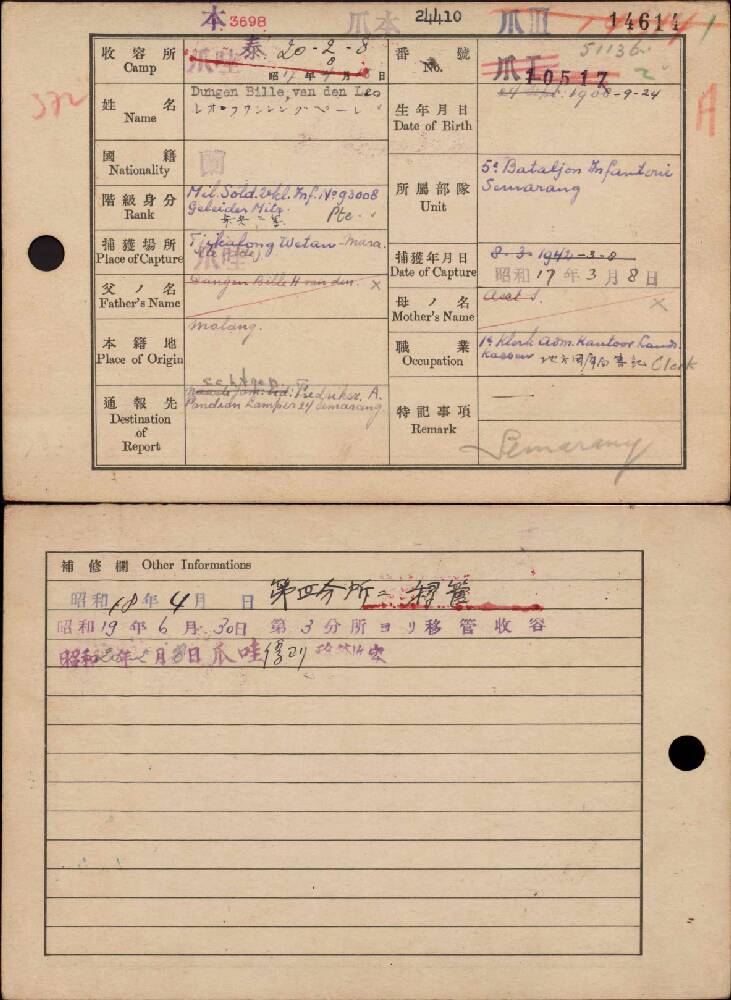 本 3698 爪本 24410 爪 III 14614
收容所 Camp 爪哇 泰 20-2-8
昭 17 年 月 日
番號 No. 51136
10517 2
372
姓名 Name Dungen Bille, van den Leo
生年月日 Date of Birth 1908-9-24
A
國籍 Nationality 蘭
階級身分 Rank Mil. Sold. 2e kl. Inf. No 93008
Geleider Mitr. Pte.
所屬部隊 Unit 5e Bataljon Infanterie
Semarang
捕獲場所 Place of Capture Tjikalong Wetan
爪哇
捕獲年月日 Date of Capture 8-3-1942-3-8
昭和 17 年 3 月 8 日
父ノ名 Father's Name Dungen Bille H van den. ×
母ノ名 Mother's Name ×
本籍地 Place of Origin Malang.
職業 Occupation 1e Klerk Adm. Kantoor Lands
Kassen Clerk
通報先 Destination of Report
Pandean Lamper 24 Semarang
特記事項 Remark —
Semarang
補修欄 Other Informations
昭和 18 年 4 月 日 第四分所ニ移管
昭和 19 年 6 月 30 日 第 3 分所ヨリ移管收容
昭和 20 年 2 月 8 日 爪哇